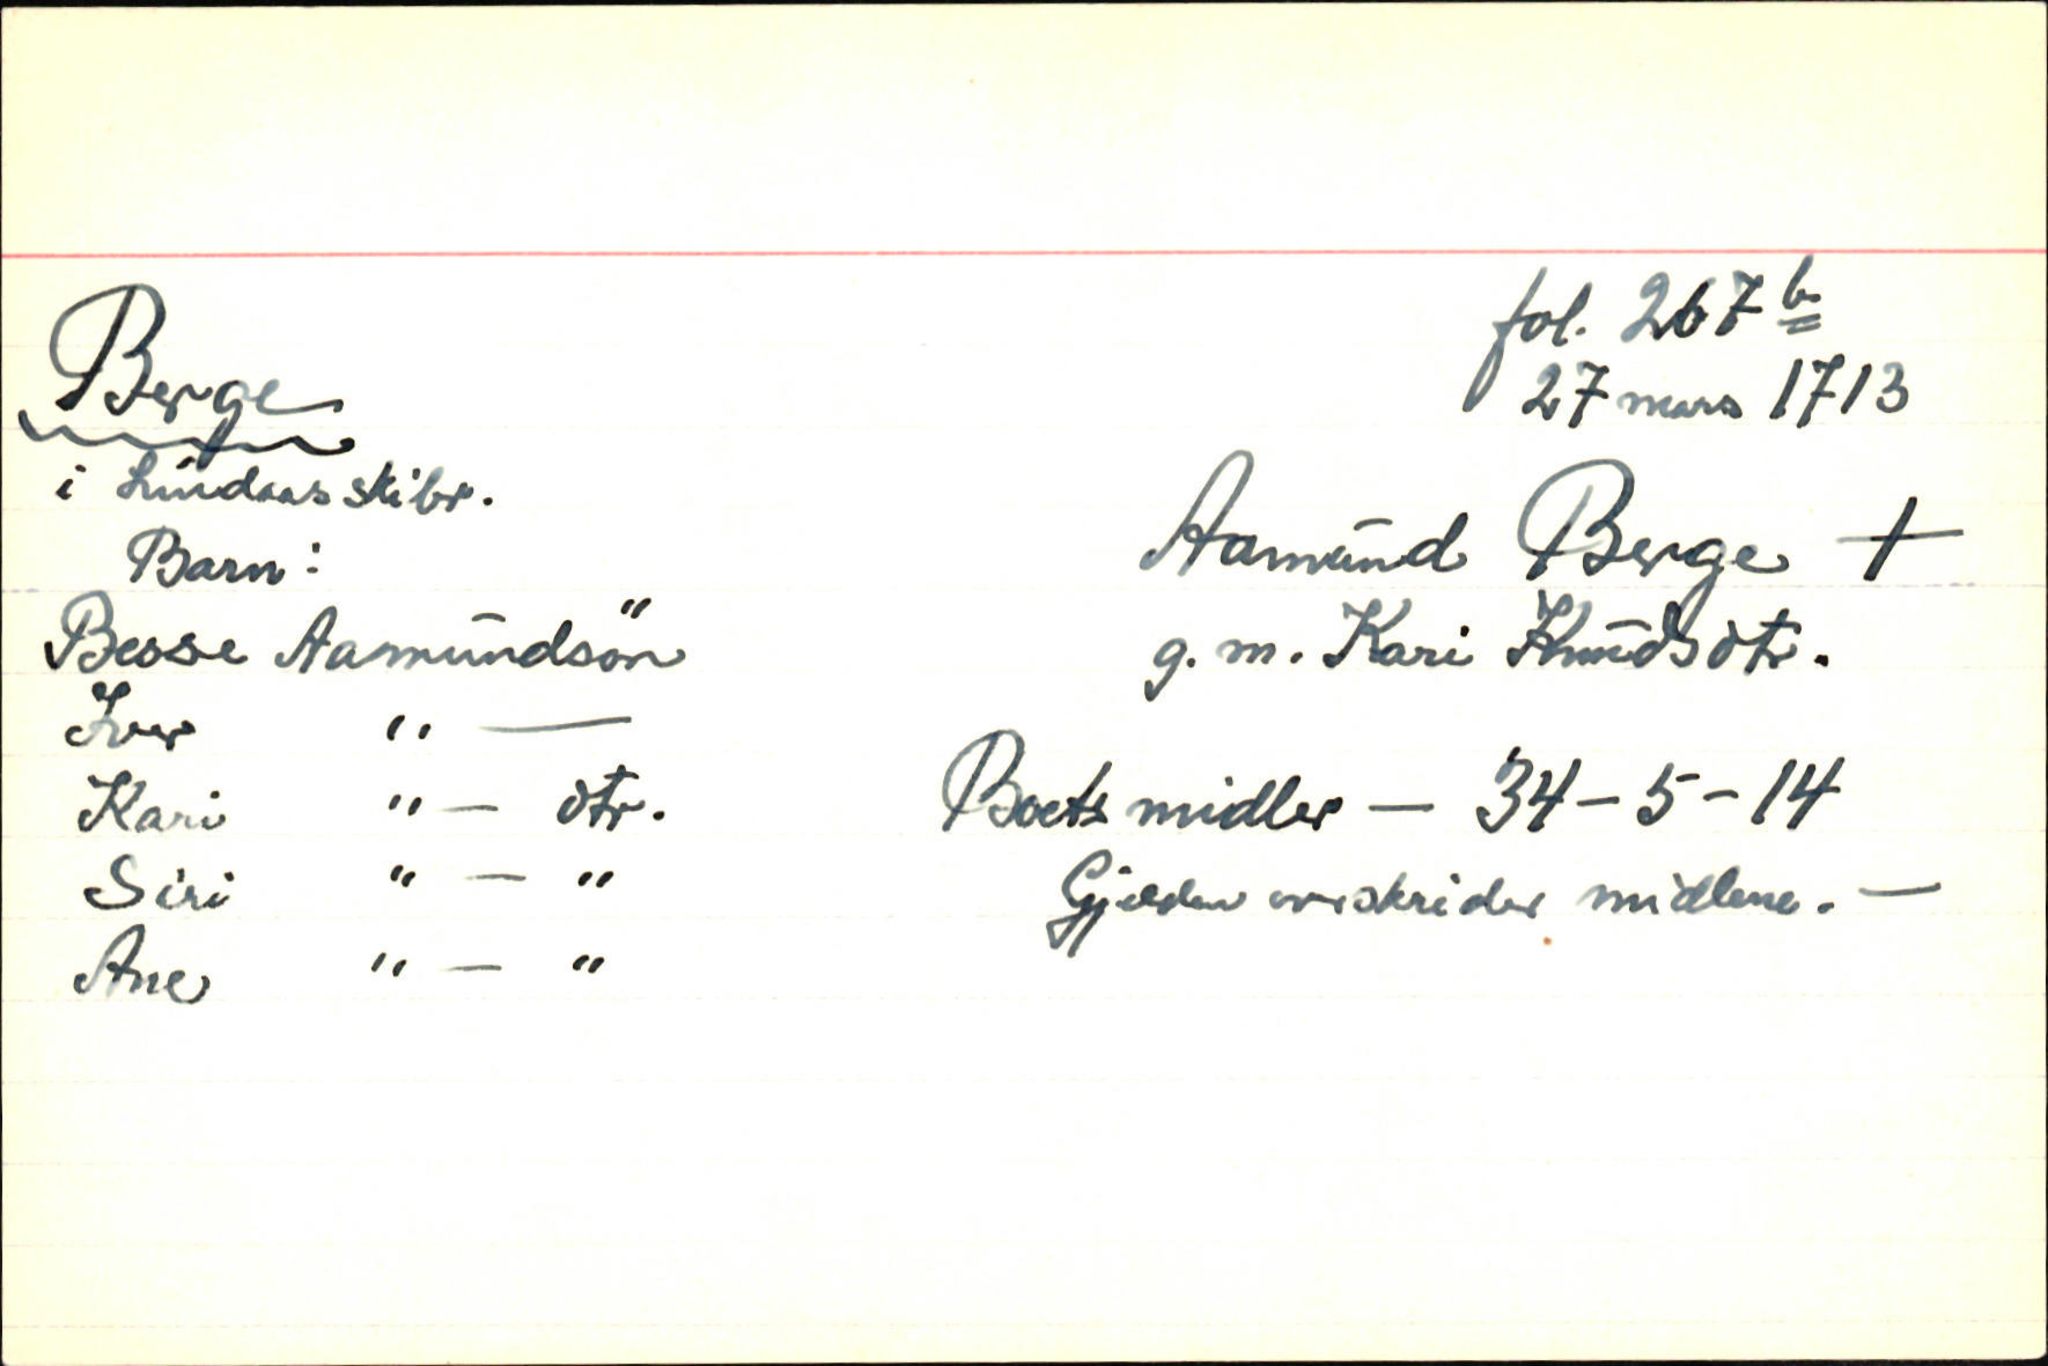 fol. 267 b
27 mars 1713
Berge
i Lindaas skibr.
Aamund Berge +
g. m. Kari Knudsdtr.
Barn:
Besse Aamundsön
Iver " —
Kari " — dtr.
Siri " — "
Ane " — "
Boets midler — 34 - 5 - 14
Gjelden overskrider midlene. —